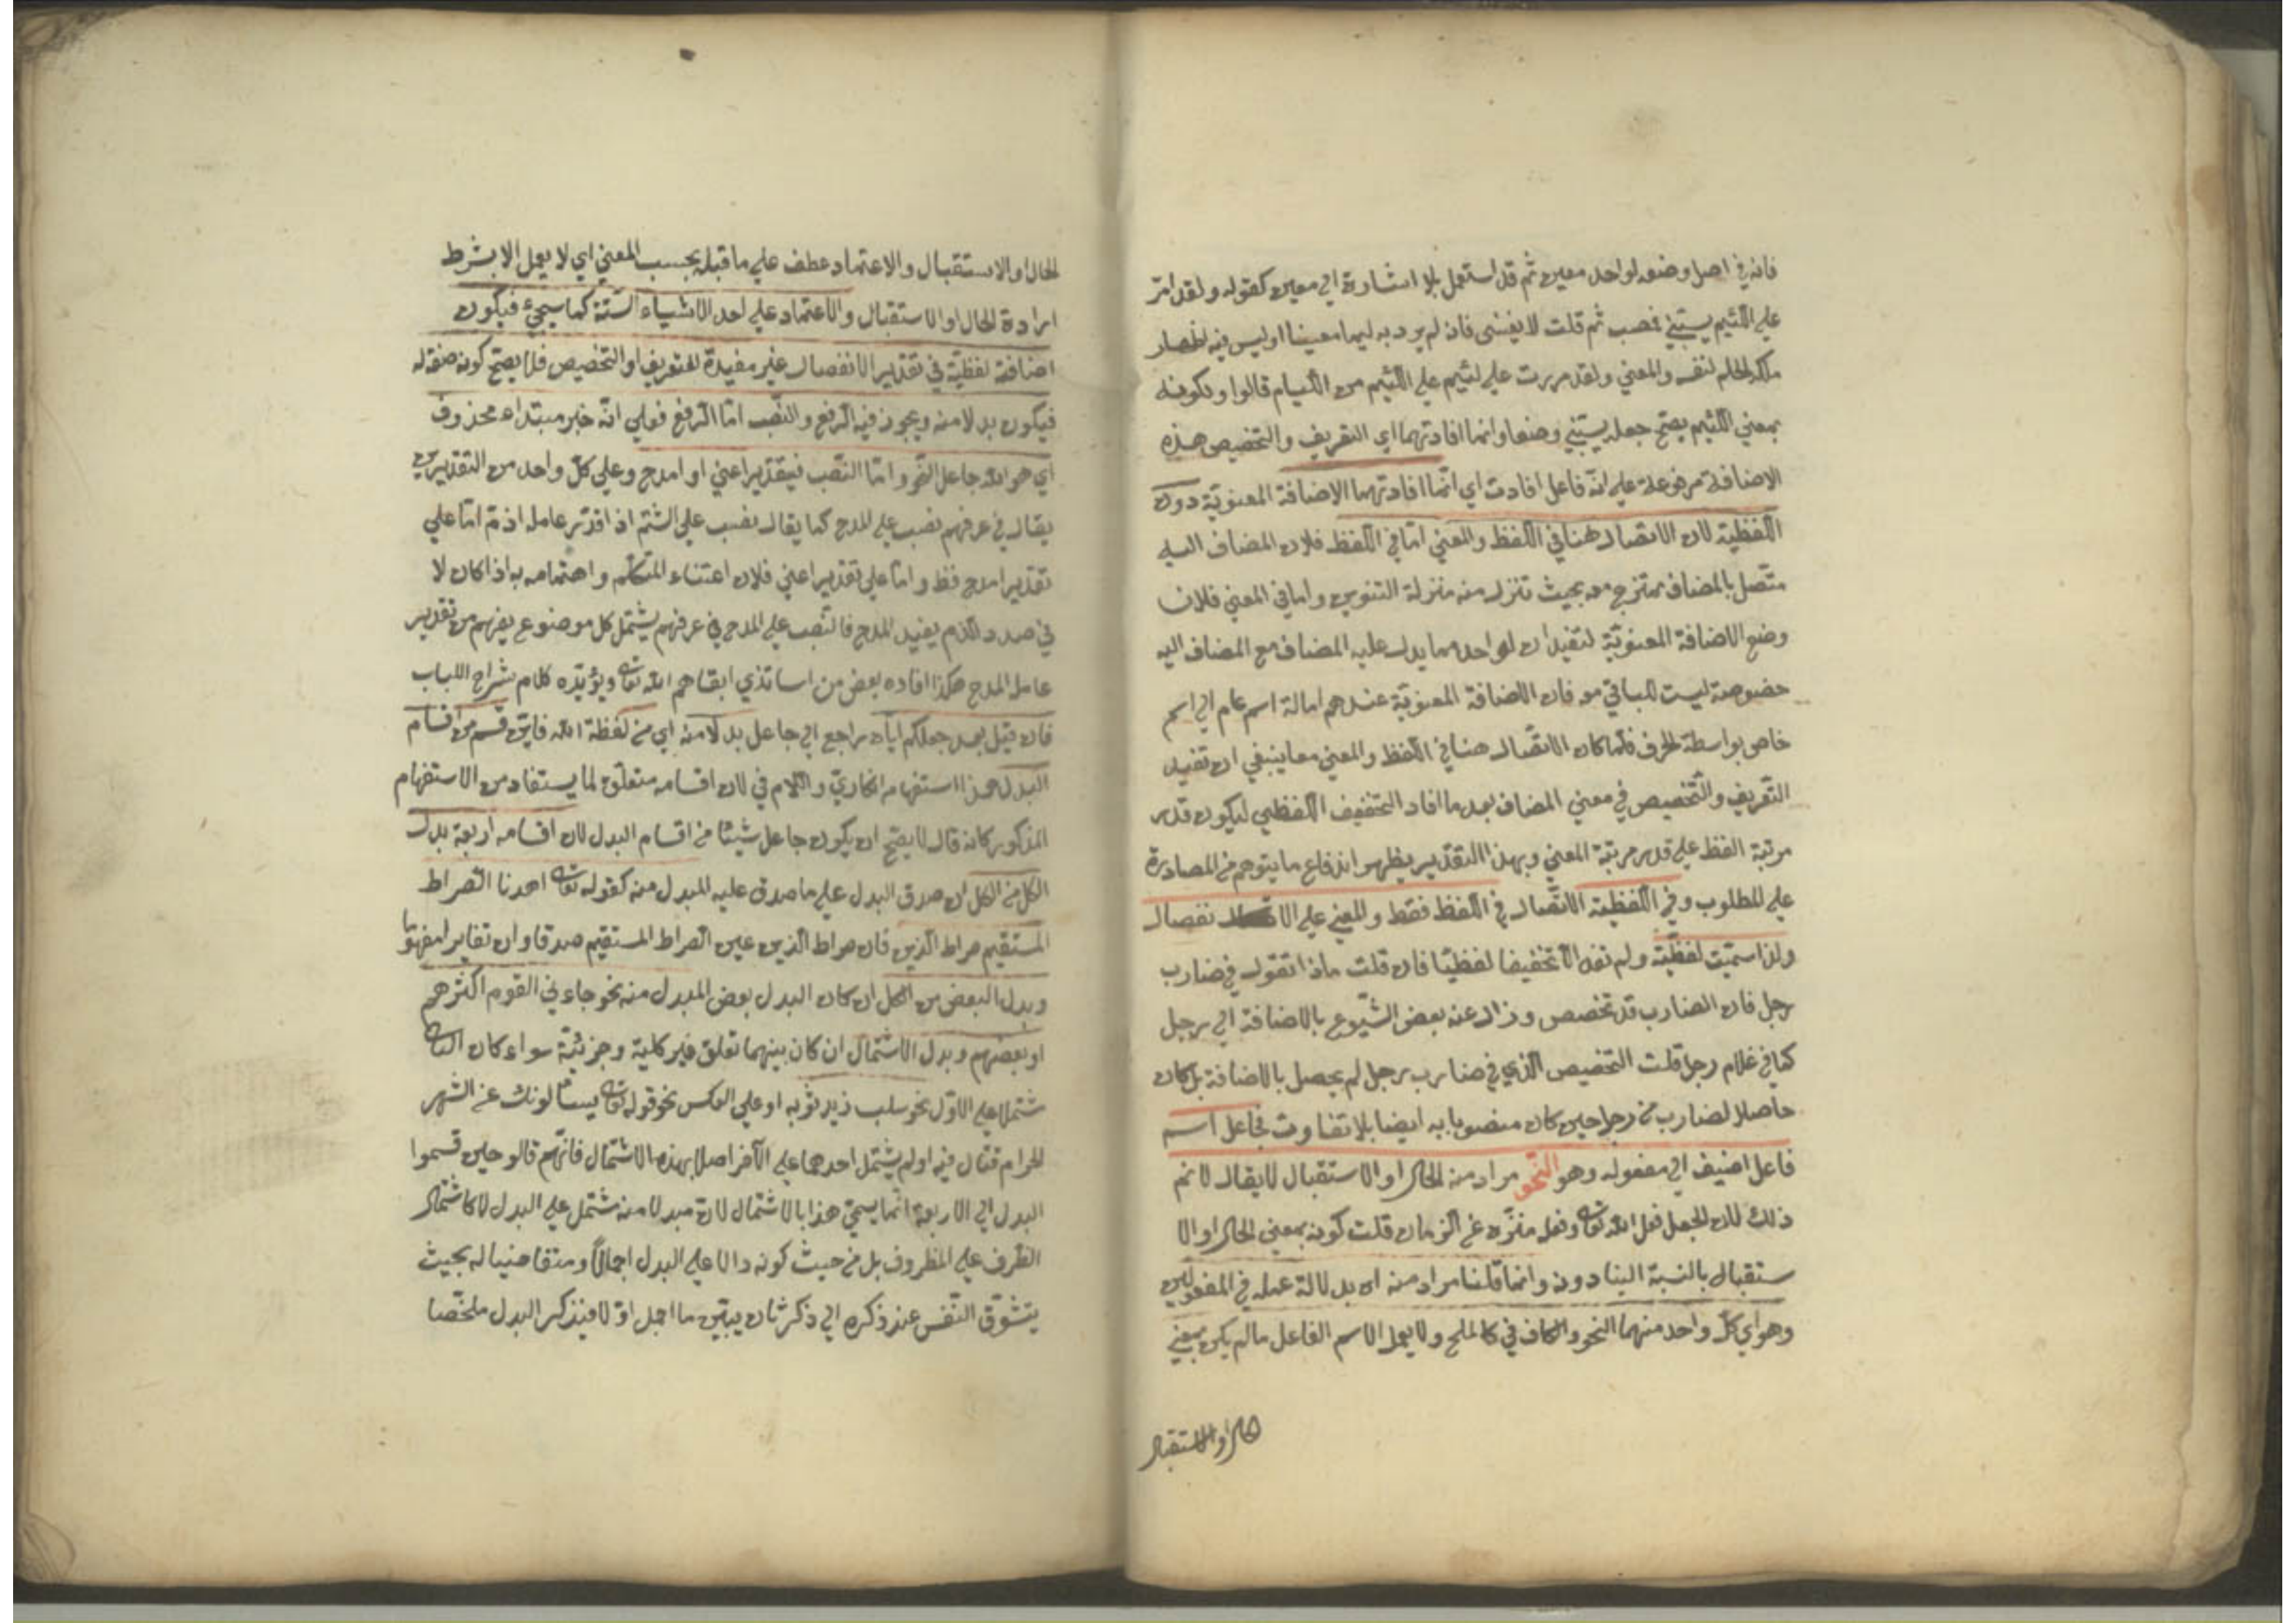 فانه في اصل وضعه لواحد معين ثم قد استعمل بلا اشارة الي معين كقوله ولقد امر
علي اللئيم يسبني فمضيت ثم قلت لا يعنيني فان لم يرد به ليما معينا اوليس فيه اظهار
ملكه الحلم لنفسه والمعني ولقد مررت علي لئيم علي اللئيم من الليام قالوا وكونه
بمعني اللئيم يصح جعل يسبني وصفا وانما افادتهما اي التعريف والتخصيص هذه
الاضافة مرفوعة علي انه فاعل افادت اي انما افادتهما الاضافة المعنوية دون
اللفظية لان الاتصال هنا في اللفظ والمعني اما في اللفظ فلان المضاف اليه
متصل بالمضاف ممتزج معه بحيث تنزل منه منزلة التنوين واما في المعني فلان
وضع الاضافة المعنوية لتفيد ان لواحد مما يدل عليه المضاف مع المضاف اليه
خصوصة ليست للباقي معه فان الاضافة المعنوية عندهم امالة اسم عام الي اسم
خاص بواسطة الحرف فلما كان الاتصال هنا في اللفظ والمعني معا ينبغي ان تفيد
التعريف والتخصيص في معني المضاف بعد ما افاد التخفيف اللفظي ليكون قدر
مرتبة اللفظ علي قدر مرتبة المعني وبهذا التقدير يظهر اندفاع ما يتوهم من المصادرة
علي المطلوب وفي اللفظية الاتصال في اللفظ فقط والمعني علي الا نفصال
ولذا سميت لفظية ولم تفد الا تخفيفا لفظيا فان قلت ماذا تقول في ضارب
رجل فان الضارب قد تخصص وزال عنه بعض الشيوع بالاضافة الي رجل
كما في غلام رجل قلت التخصيص الذي في ضارب رجل لم يحصل بالاضافة بل كان
حاصلا لضارب من رجل حين كان منصوبا به ايضا بلا تفاوت فجاعل اسم
فاعل اضيف الي مفعوله وهو النحو مراد منه الحال او الاستقبال لا يقال لا نم
ذلك لان الجعل فعل الله تعالى وفعله منزه عن الزمان قلت كونه بمعني الحال او الا
ستقبال بالنسبة الينا دونه وانما قلنا مراد منه اي بدلالة عمله في المفعولين
وهو اي كل واحد منهما النحو والكاف في كالملح ولا يعمل الاسم الفاعل مالم يكن بمعني
الحال او الاستقبال
الحال او الاستقبال والاعتماد عطف علي ما قبله بحسب المعني اي لا يعمل الا بشرط
ارادة الحال او الاستقبال والاعتماد علي احد الاشياء الستة كما سيجئ فيكون
اضافة لفظية في تقدير الانفصال غير مفيدة للتعريف او التخصيص فلا يصح كونه صفة له
فيكون بدلا منه ويجوز فيه الرفع والنصب اما الرفع فعلي انه خبر مبتداء محذوف
اي هو الله جاعل النحو واما النصب فيقدير اعني او امدح وعلي كل واحد من التقديرين
يقال في عرفهم نصب علي المدح كما يقال نصب علي الشتم اذا قدر عامله اذم اما علي
تقدير امدح فقط واما علي تقدير اعني فلان اعتناء المتكلم واهتمامه به اذا كان لا
في صدد الذم يفيد المدح فالنصب علي المدح في عرفهم يشتمل كل موضوع يفهم من تقدير
عامله المدح هكذا افاده بعض من اساتذي ابقاهم الله تعالى ويؤيده كلام شراح اللباب
فان قيل بعد جعلكم اياه راجع الي جاعل بدلا منه اي من لفظة الله فايّ قسم من اقسام
البدل هذا استفهام انكاري واللام في لان اقسامه متعلق لما يستفاد من الاستفهام
المذكور كانه قال لا يصح ان يكون جاعل شيئا من اقسام البدل لان اقسامه اربعة بدل
الكل من الكل ان صدق البدل علي ما صدق عليه المبدل منه كقوله تعالى اهدنا الصراط
المستقيم صراط الذين فان صراط الذين عين الصراط المستقيم صدقا وان تغايرا مفهوما
وبدل البعض من الكل ان كان البدل بعض المبدل منه نحو جاءني القوم اكثرهم
او بعضهم وبدل الاشتمال ان كان بينهما تعلق غير كلية وجزئية سواء كان الثاني
مشتملا علي الاول نحو سلب زيد ثوبه او علي العكس نحو قوله تعالى يسئالونك عن الشهر
الحرام قتال فيه اولم يشتمل احدهما علي الآخر اصلا بهذه الاشتمال فانهم قالو حين قسموا
البدل الي الاربعة انما يسمي هذا بالاشتمال لان مبدلا منه مشتمل علي البدل لا كاشتمال
الظرف علي المظروف بل من حيث كونه دالا علي البدل اجمالا ومتقاضيا له بحيث
يتشوق النفس عند ذكره الي ذكر ثان يبين ما اجمل اولا فيذكر البدل ملخصا